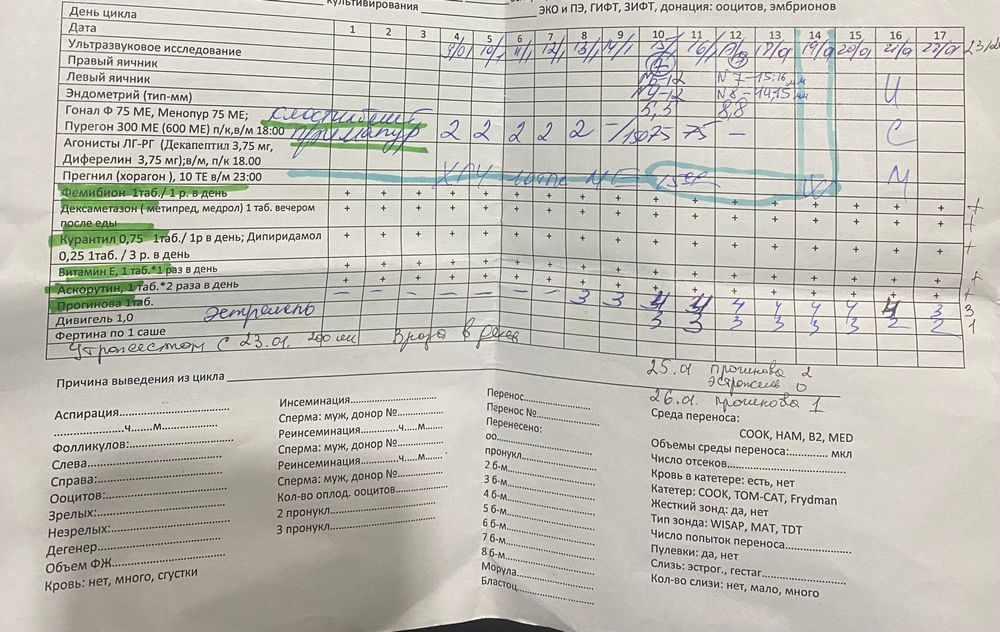 Культивирования
ЭКО и ПЭ, ГИФТ, ЗИФТ, донация: ооцитов, эмбрионов
День цикла 1 2 3 4 5 6 7 8 9 10 11 12 13 14 15 16 17
Дата 9/01 10/1 11/1 12/1 13/1 14/1 15/1 16/1 17/01 19/01 20/01 21/01 22/01
Ультразвуковое исследование 7
Правый яичник N6-12 N7-15;16 мм
Левый яичник N4-12 N8-14,15 мм
Эндометрий (тип-мм) 5,5 8,8
Гонал Ф 75 МЕ, Менопур 75 МЕ; клостилбегит
Пурегон 300 МЕ (600 МЕ) п/к,в/м 18:00 2 2 2 2 2 -/150 75 75 - С
Агонисты ЛГ-РГ (Декапептил 3,75 мг,
Диферелин 3,75 мг);в/м, п/к 18.00
Прегнил (хорагон ), 10 ТЕ в/м 23:00 ХГЧ
Фемибион 1таб./ 1 р. в день + + + + + + + + + + + + + + + + + +
Дексаметазон ( метипред, медрол) 1 таб. вечером
после еды + + + + + + + + + + + + + + + + + +
Курантил 0,75 1таб./ 1р в день; Дипиридамол
0,25 1таб. / 3 р. в день + + + + + + + + + + + + + + + + +
Витамин Е, 1 таб.*1 раз в день + + + + + + + + + + + + + + + + + +
Аскорутин, 1 таб.*2 раза в день + + + + + + + + + + + + + + + + + +
Прогинова 1таб. – – – – – – – 3 3 4 4 4 4 4 4 4 3 3
Дивигель 1,0 Эстрожель 3 3 3 3 3 3 2 2 1
Фертина по 1 саше
Утрожестан с 23.01. 200 мг 3 раза в день
25.01 прогинова 2
эстрожель 0
26.01. прогинова 1
Причина выведения из цикла
Аспирация
ч м
Фолликулов:
Слева
Справа:
Ооцитов:
Зрелых:
Незрелых:
Дегенер
Объем ФЖ
Кровь: нет, много, сгустки
Инсеминация
Сперма: муж, донор №
Реинсеминация ч. м
Сперма: муж, донор №
Реинсеминация ч. м
Сперма: муж, донор №
Кол-во оплод. ооцитов
2 пронукл
3 пронукл
Перенос
Перенос №
Перенесено:
оо
пронукл
2 б-м
3 б-м
4 б-м
5 б-м
6 б-м
7 б-м
8 б-м
Морула
Бластоц
Среда переноса:
COOK, HAM, B2, MED
Объемы среды переноса: мкл
Число отсеков
Кровь в катетере: есть, нет
Катетер: COOK, TOM-CAT, Frydman
Жесткий зонд: да, нет
Тип зонда: WISAP, MAT, TDT
Число попыток переноса
Пулевки: да, нет
Слизь: эстрог., гестаг
Кол-во слизи: нет, мало, много